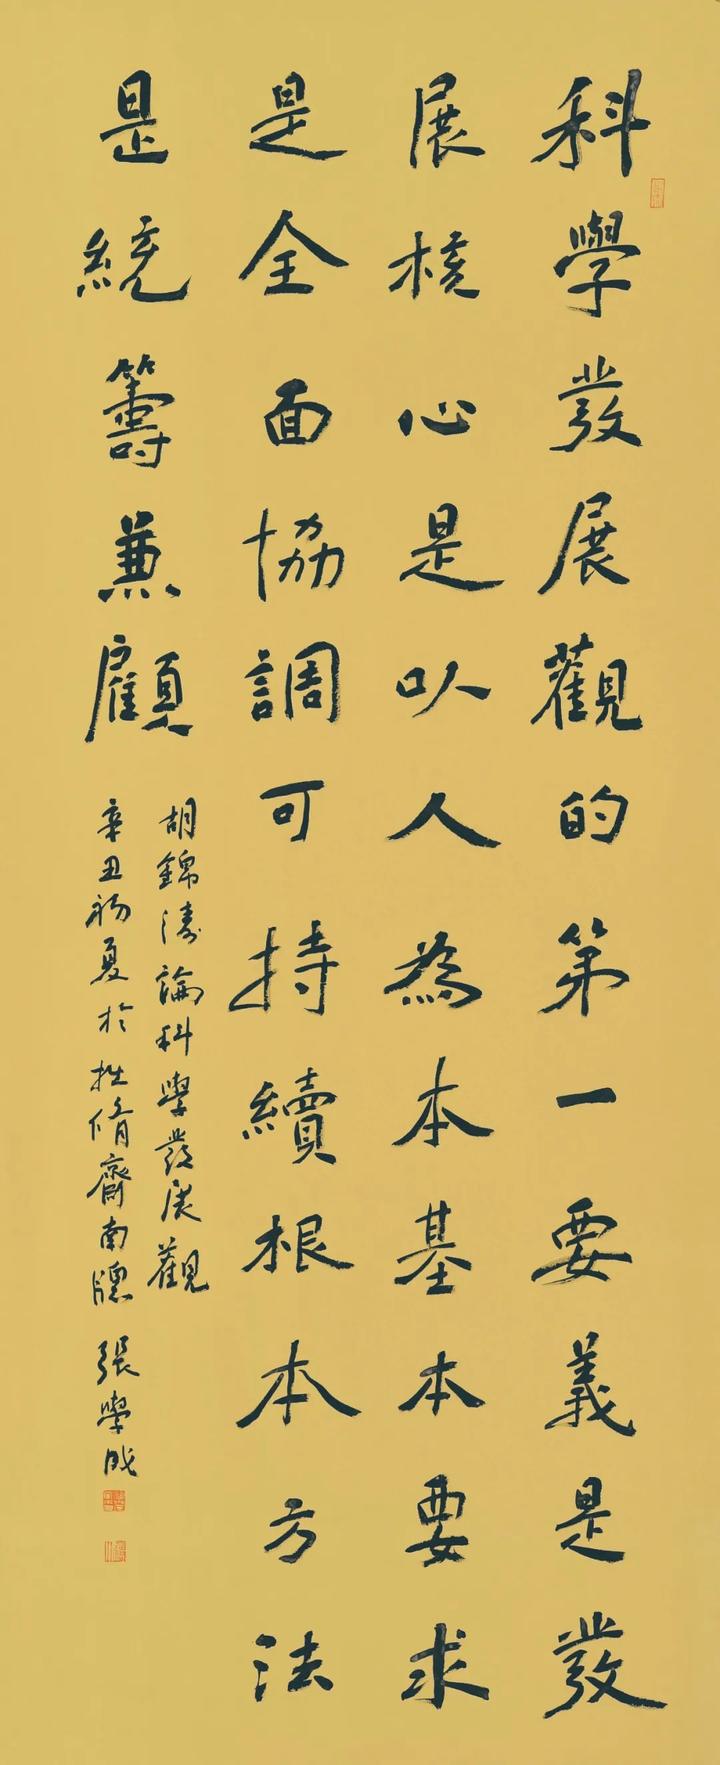 科學發展觀的第一要義是發
展核心是以人為本基本要求
是全面協調可持續根本方法
是統籌兼顧
胡錦濤論科學發展觀
辛丑初夏於拙脩齋南牕 張學成